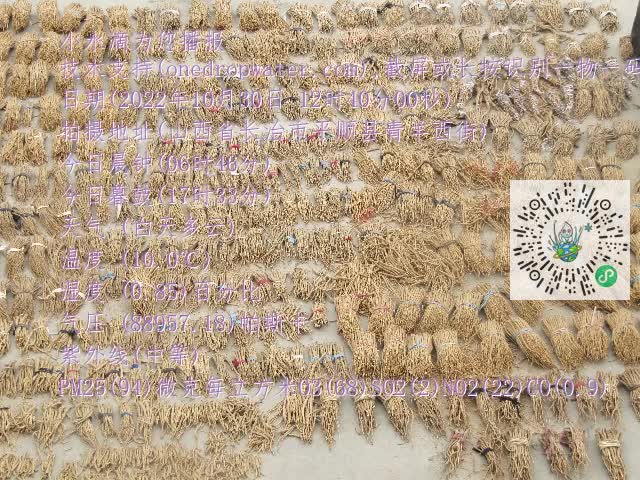 小水滴为您播报
技术支持(onedropwater.com) 截屏或长按识别一物一码
日期(2022年10月30日 12时10分00秒)
拍摄地址(山西省长治市平顺县青羊西街)
今日晨钟(06时46分)
今日暮鼓(17时33分)
天气 (白天多云)
温度 (10.0℃)
湿度 (0.85)百分比
气压 (88957.18)帕斯卡
紫外线(中等)
PM25(94)微克每立方米O3(68)SO2(2)NO2(22)CO(0.9)